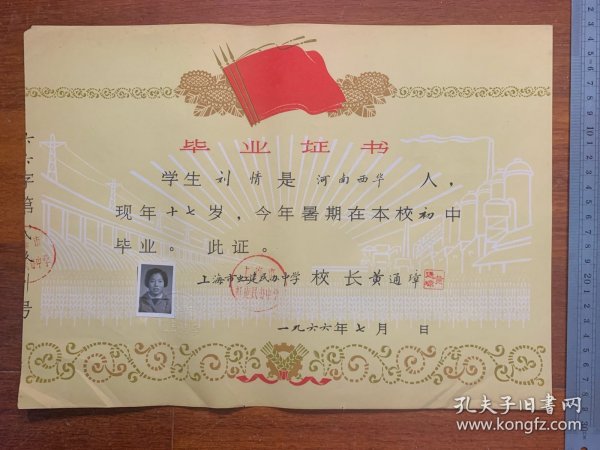 毕业证书
学生刘情是河南西华人，
现年十七岁，今年暑期在本校初中
毕业。此证。
上海市虹建民办中学 校长黄通璋
一九六六年七月 日
字第
号
孔夫子旧书网
www.kongfz.com